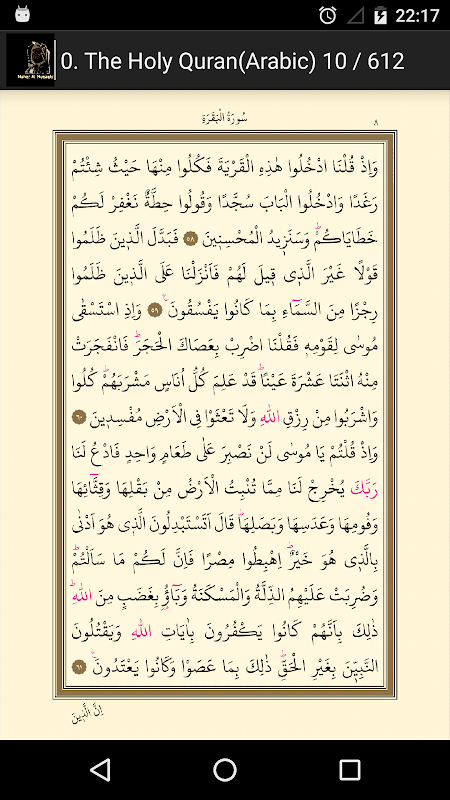 22:17
0. The Holy Quran(Arabic) 10 / 612
سُورَةُ الْبَقَرَةِ ٨
وَاِذْ قُلْنَا ادْخُلُوا هٰذِهِ الْقَرْيَةَ فَكُلُوا مِنْهَا حَيْثُ شِئْتُمْ
رَغَدًا وَادْخُلُوا الْبَابَ سُجَّدًا وَقُولُوا حِطَّةٌ نَغْفِرْ لَكُمْ
خَطَايَاكُمْۜ وَسَنَزِيدُ الْمُحْسِنِينَ ٥٨ فَبَدَّلَ الَّذِينَ ظَلَمُوا
قَوْلًا غَيْرَ الَّذِي قِيلَ لَهُمْ فَاَنْزَلْنَا عَلَى الَّذِينَ ظَلَمُوا
رِجْزًا مِنَ السَّمَٓاءِ بِمَا كَانُوا يَفْسُقُونَ۟ ٥٩ وَاِذِ اسْتَسْقٰى
مُوسٰى لِقَوْمِهِ فَقُلْنَا اضْرِبْ بِعَصَاكَ الْحَجَرَۜ فَانْفَجَرَتْ
مِنْهُ اثْنَتَا عَشْرَةَ عَيْنًاۜ قَدْ عَلِمَ كُلُّ اُنَاسٍ مَشْرَبَهُمْۜ كُلُوا
وَاشْرَبُوا مِنْ رِزْقِ اللّٰهِ وَلَا تَعْثَوْا فِي الْاَرْضِ مُفْسِدِينَ ٦٠
وَاِذْ قُلْتُمْ يَا مُوسٰى لَنْ نَصْبِرَ عَلٰى طَعَامٍ وَاحِدٍ فَادْعُ لَنَا
رَبَّكَ يُخْرِجْ لَنَا مِمَّا تُنْبِتُ الْاَرْضُ مِنْ بَقْلِهَا وَقِثَّٓائِهَا
وَفُومِهَا وَعَدَسِهَا وَبَصَلِهَاۜ قَالَ اَتَسْتَبْدِلُونَ الَّذِي هُوَ اَدْنٰى
بِالَّذِي هُوَ خَيْرٌۜ اِهْبِطُوا مِصْرًا فَاِنَّ لَكُمْ مَا سَاَلْتُمْۜ
وَضُرِبَتْ عَلَيْهِمُ الذِّلَّةُ وَالْمَسْكَنَةُ وَبَٓاؤُ۫ بِغَضَبٍ مِنَ اللّٰهِۜ
ذٰلِكَ بِاَنَّهُمْ كَانُوا يَكْفُرُونَ بِاٰيَاتِ اللّٰهِ وَيَقْتُلُونَ
النَّبِيّنَ بِغَيْرِ الْحَقِّۜ ذٰلِكَ بِمَا عَصَوْا وَكَانُوا يَعْتَدُونَ۟ ٦١
اِنَّ الَّذِينَ